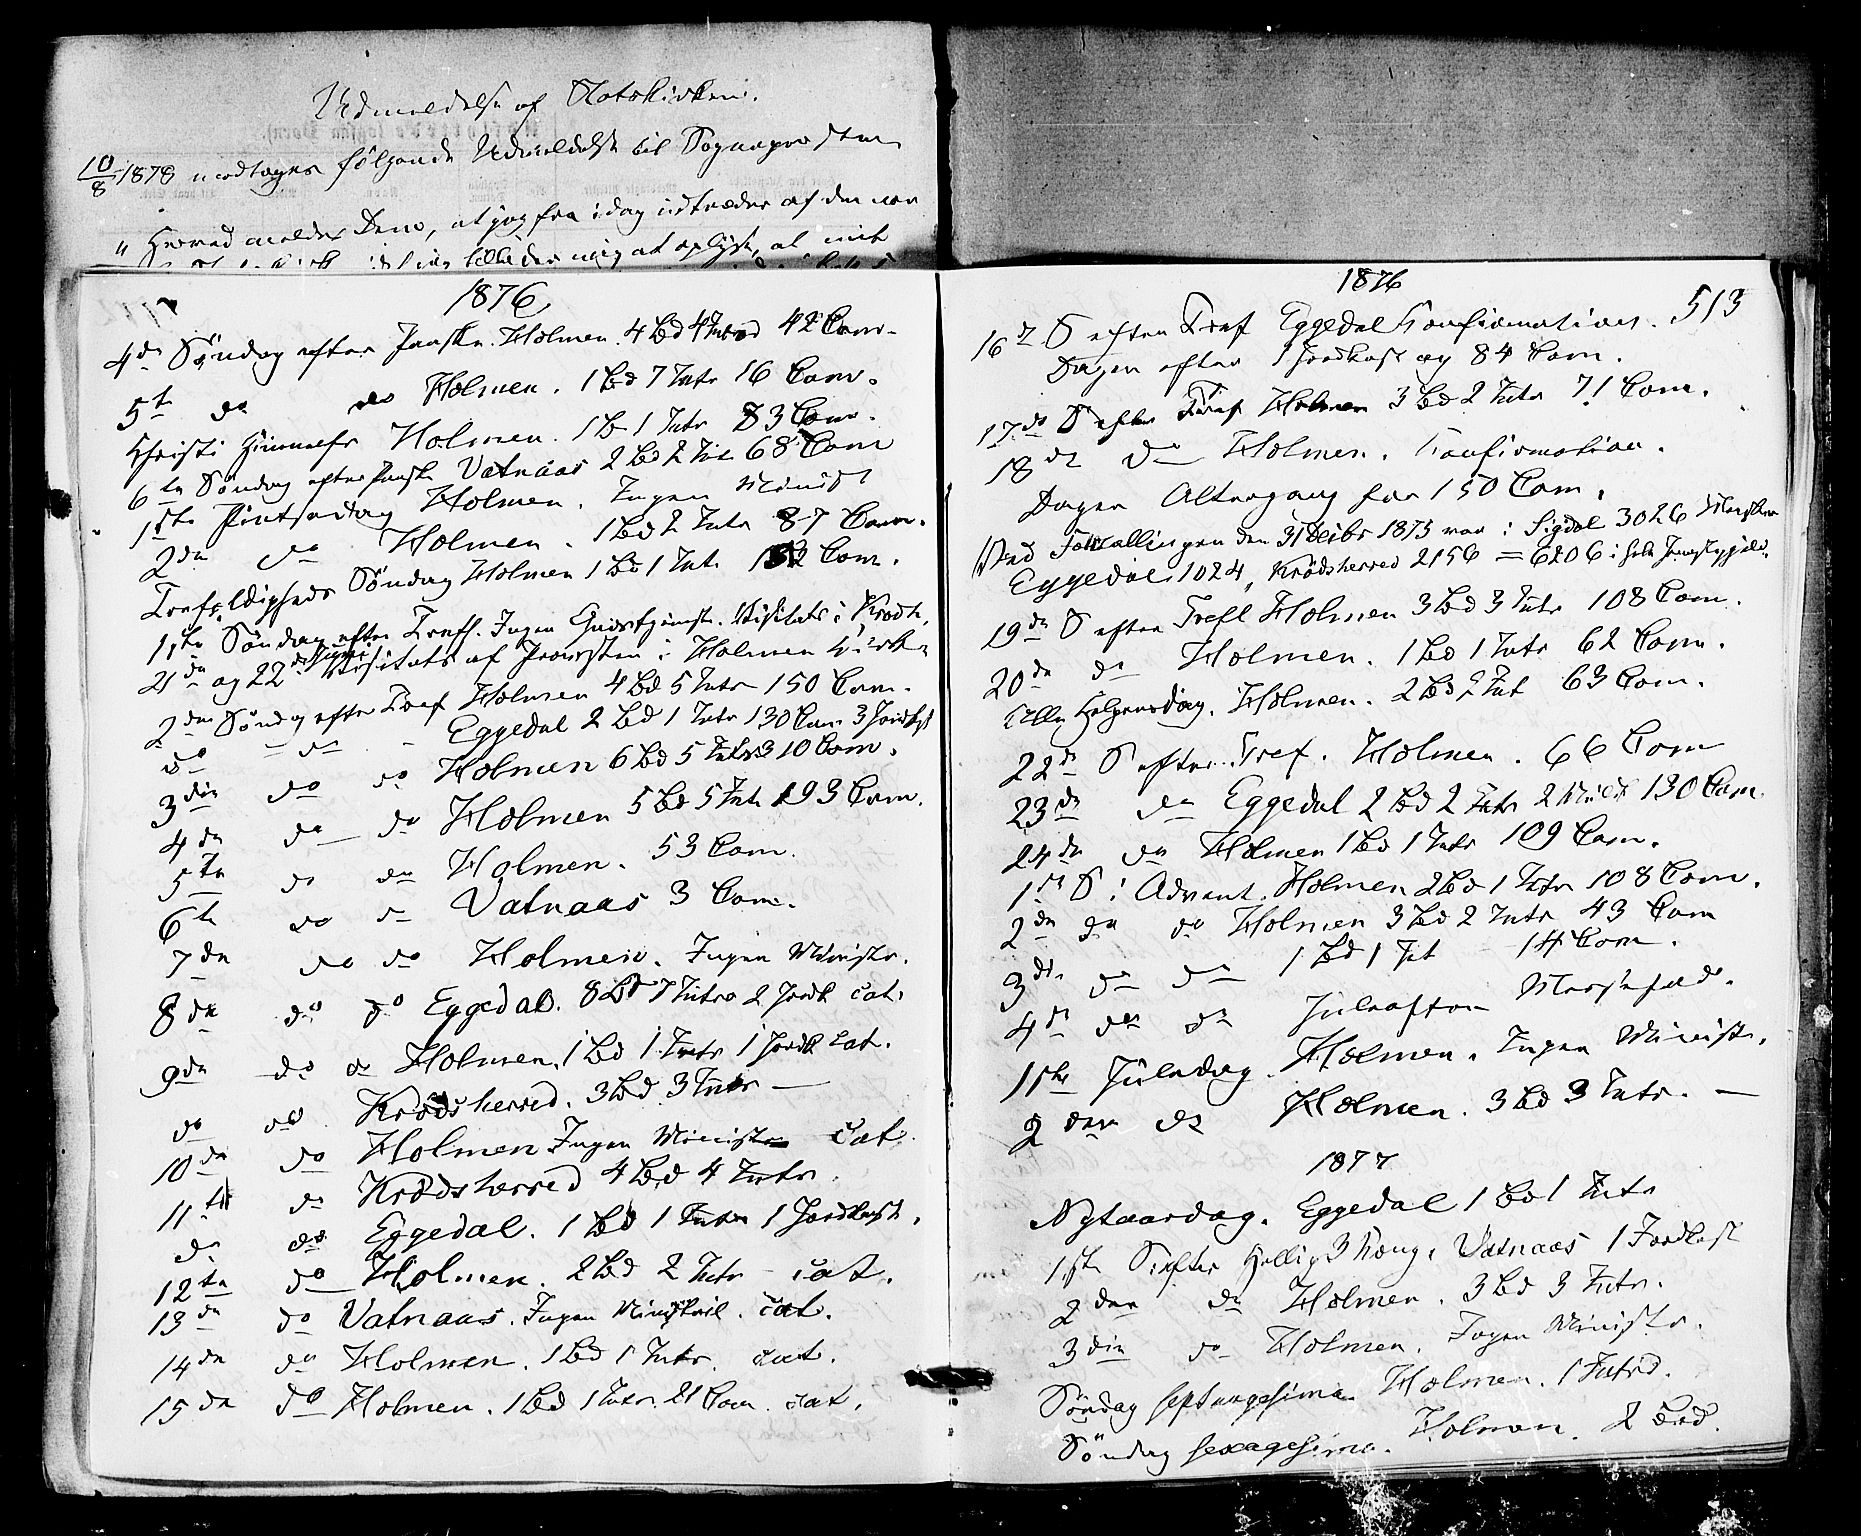 Udmeldelse af Statskirken.
10/8 1878 modtages følgende Udmeldelse til Sognepræsten
" Herved meldes Dem, at jeg fra idag udtræder af den nor
tillader mig at oplyse, at mit
1876
4de Søndag efter Paaske. Holmen. 4 Bd 4 Intrd 42 Com.
5te do do Holmen. 1 Bd 7 Intr 16 Com.
Christi Himmelfr Holmen. 1 B 1 Intr 83 Com.
6te Søndag efter Paaske Vatnaas 2 Bd 2 Int 68 Com
1ste Pintsedag Holmen. Ingen Minist
2den do Holmen. 1 Bd 2 Intr 87 Com.
Trefoldigheds Søndag Holmen 1 Bd 1 Int. 132 Com.
1ste Søndag efter Trefl. Ingen Gudstjenst. Visitats i Krødh.
21de og 22de Juni Visitats af Provsten i Holmen Kirke
2den Søndag efter Tref Holmen 4 Bd 5 Intr 150 Com.
do - do - Eggedal 2 Bd 1 Intr 130 Com 3 Jordkst
3die do do Holmen 6 Bd 5 Intr 310 Com.
4de do do Holmen 5 Bd 5 Int 193 Com.
5te do do Holmen. 53 Com.
6te do do Vatnaas 3 Com.
7de do do Holmen. Ingen Ministr.
8de do do Eggedal. 8 Bd 7 Intr 2 Jordk Cat.
9de do do Holmen. 1 Bd 1 Intr 1 Jordk Cat.
do do Krødsherred. 3 Bd. 3 Intr —
10de do Holmen Ingen Ministr Cat.
11te do Krødsherred 4 Bd 4 Intr.
do do Eggedal. 1 Bd 1 Intr 1 Jordkast.
12te do Holmen. 2 Bd 2 Intr - Cat.
13de do Vatnaas. Ingen Ministeriel. Cat.
14de do Holmen. 1 Bd 1 Intr. Cat.
15de do Holmen. 1 Bd 1 Intr 21 Com. Cat.
1876
513
16de S efter Tref Eggedal Konfirmation.
Dagen efter 1 Jordkast og 84 Com.
17de S efter Tref Holmen 3 Bd 2 Intr 71 Com.
18de do Holmen. Konfirmation.
Dagen Altergang for 150 Com.
Ved Folketællingen den 31 Decbr 1875 var i Sigdal 3026 Mennesker
Eggedal 1024, Krødsherred 2156 = 6206 i hele Præstegjeld.
19de S efter Trefl Holmen 3 Bd 3 Intr 108 Com.
20de do Holmen. 1 Bd 1 Intr 62 Com.
Alle Helgensdag. Holmen. 2 Bd 2 Int 63 Com.
22de S efter Tref. Holmen. 66 Com
23de do Eggedal 2 Bd 2 Intr 130 Com
24de do Holmen 1 Bd 1 Intr 109 Com.
1ste S. i Advent. Holmen 2 Bd 1 Intr 108 Com.
2den do do Holmen 3 Bd 2 Intr 43 Com
3die do do 1 Bd 1 Int - 14 Com.
4de do do Juleaften
1ste Juledag. Holmen. Ingen Ministr.
2den do Holmen. 3 Bd 3 Intr. —
1877
Nytaarsdag. Eggedal 1 Bd 1 Intr
1ste S. efter Hellig 3 Kong. Vatnaas 1 Jordkast
2den do Holmen. 3 Bd 3 Intr.
3die do Holmen. Ingen Ministr.
Søndag septuagesima Holmen. 1 Intrd.
Søndag sexagesima. Holmen. 2